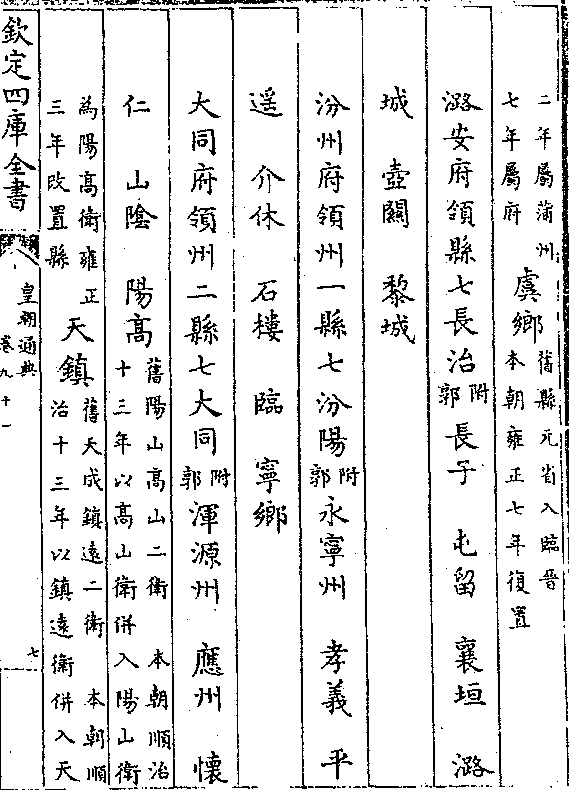 二年屬蒲州
七年屬府
虞鄉
舊縣元省入臨晉
本朝雍正七年復置
潞安府領縣七長治附郭長子　屯留　襄垣　潞
城　壺關　黎城
汾州府領州一縣七汾陽附郭永寧州　孝義　平
遥　介休　石樓　臨　寧鄉
大同府領州二縣七大同附郭渾源州　應州　懷
仁　山隂　陽高
舊陽山高山二衛　本朝順治
十三年以高山衛併入陽山衛
為陽高衛雍正
三年改置縣
天鎮
舊天成鎮遠二衛　本朝順
治十三年以鎮遠衛併入天
欽定四庫全書
皇朝通典
卷九十一
七